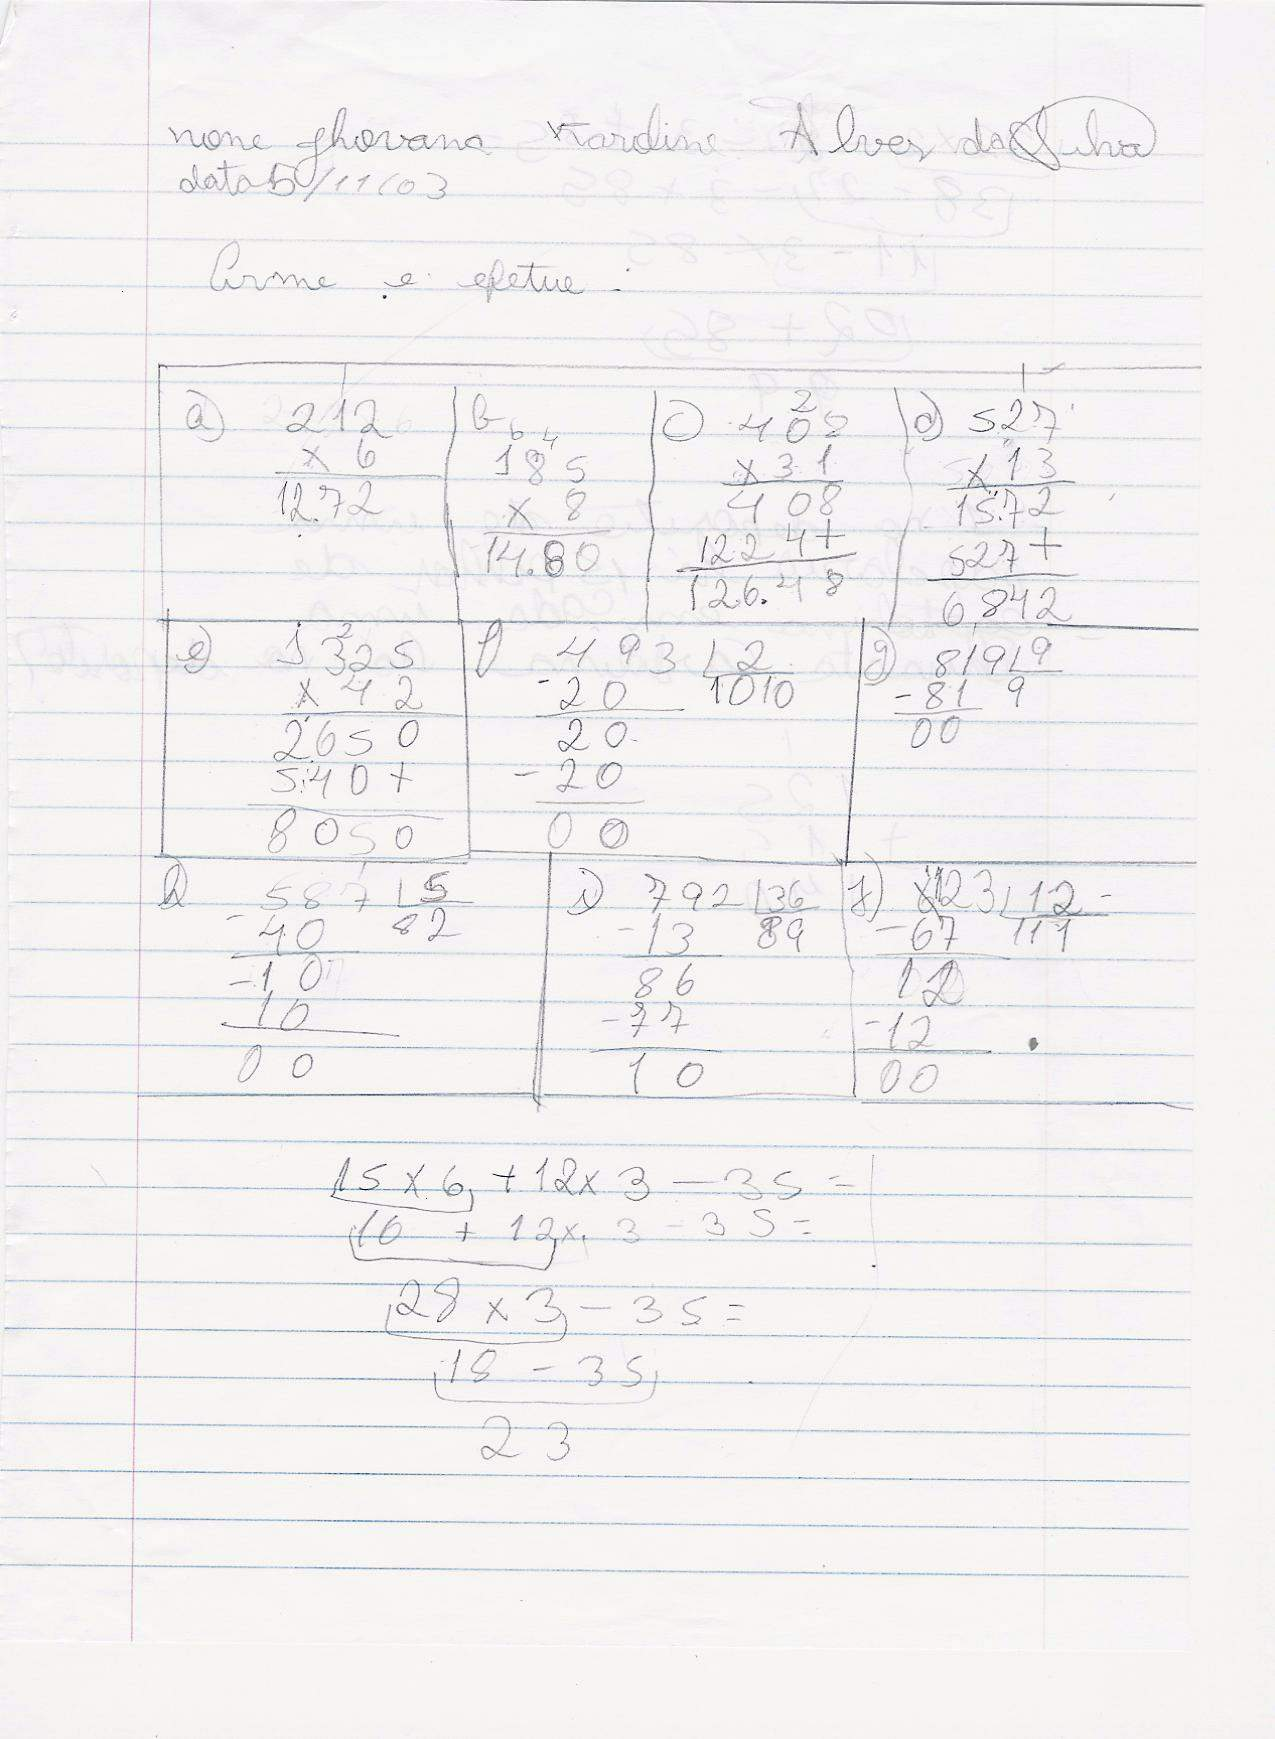 nome ghovana Karoline Alves da Silva
data 5/11/03
Arme e efetue :
a) 212
x 6
12.72
b 6 4
185
x 8
14.80
c) 2
408
x 31
408
1224+
126.48
d) 527
x 13
15.72
527+
6,842
e) 2
1325
x 42
2650
540+
8050
f 493 2
-20 1010
20
-20
00
g) 819 9
-81 9
00
h 587 5
-40 82
-10
10
00
i) 792 36
-13 89
86
-77
10
j) 123 12
-67 111
12
-12
00
15 x 6 + 12 x 3 - 35 =
10 + 12 x 3 - 35 =
28 x 3 - 35 =
18 - 35
23